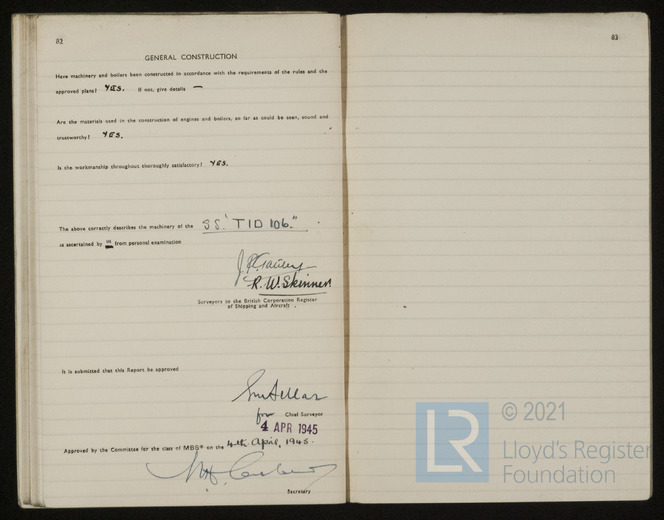 82
GENERAL CONSTRUCTION
Have machinery and boilers been constructed in accordance with the requirements of the rules and the
approved plans? YES. If not, give details —
Are the materials used in the construction of engines and boilers, so far as could be seen, sound and
trustworthy? YES.
Is the workmanship throughout thoroughly satisfactory? YES.
The above correctly describes the machinery of the SS. "TID 106."
as ascertained by us from personal examination
R. W. Skinner.
Surveyors to the British Corporation Register
of Shipping and Aircraft.
It is submitted that this Report be approved
for Chief Surveyor
4 APR 1945
Approved by the Committee for the class of MBS* on the 4th April, 1945.
Secretary
83
LR
© 2021
Lloyd's Register
Foundation